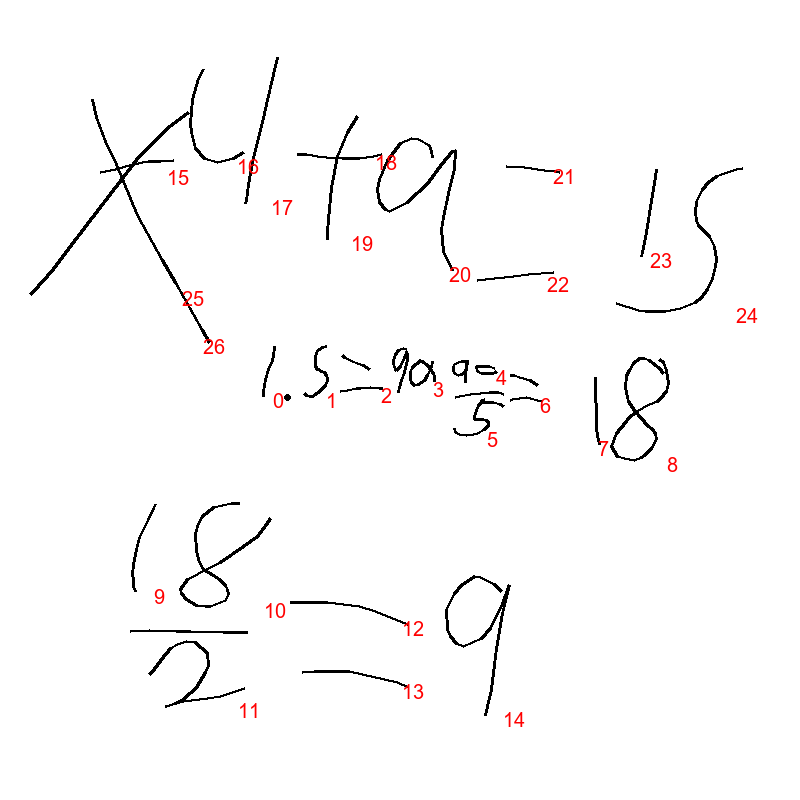 x4+9=15
15 16 17 18 19 20 21 22 23 24 25 26
1.5=90 90/5=18
0 1 2 3 4 5 6 7 8
18/2=9
9 10 11 12 13 14